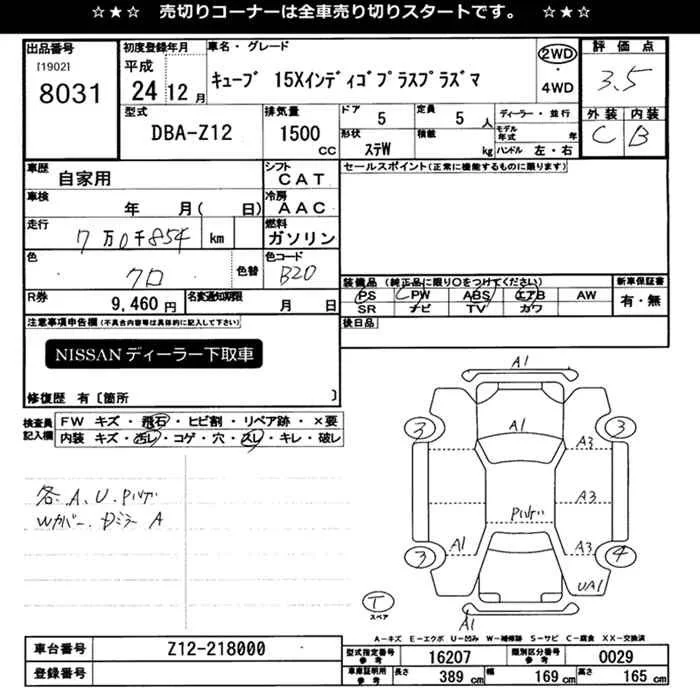 ☆★☆ 売切りコーナーは全車売り切りスタートです。 ☆★☆
出品番号
[1902]
8031
初度登録年月
平成
24年12月
車名・グレード
キューブ 15Xインディゴプラスプラズマ
2WD
・
4WD
評価点
3.5
外装 内装
C B
型式
DBA-Z12
排気量
1500
CC
ドア
5
形状
ステW
定員
5人
積載
kg
ディーラー・並行
モデル年式 年
ハンドル 左・右
車歴
自家用
シフト
CAT
セールスポイント(正常に機能するものに限ります)
車検
年 月( 日)
冷房
AAC
走行
7万0千854 km
燃料
ガソリン
色
クロ
色替
色コード
B20
装備品(純正品に限り○をつけてください)
PS PW ABS エアB AW
SR ナビ TV カワ
新車保証書
有・無
R券
9,460円
名変通知期限
月 日
後日品
注意事項申告欄(不具合内容等は具体的に記入して下さい)
NISSANディーラー下取車
修復歴 有〔箇所 〕
検査員記入欄
FW キズ・飛石・ヒビ割・リペア跡・×要
内装 キズ・汚レ・コゲ・穴・スレ・キレ・破レ
各A、U、Pハゲ
Wカバー、Dミラー A
A1
A1
3
3
A3
A3
Pハゲ
A1
A3
3
4
UA1
T
スペア
A1
A-キズ E-エクボ U-凹み W-補修跡 S-サビ C-腐食 XX-交換済
車台番号
Z12-218000
登録番号
型式指定番号
参考
16207
類別区分番号
参考
0029
車庫証明用
参考
長さ
389 cm
幅
169 cm
高さ
165 cm